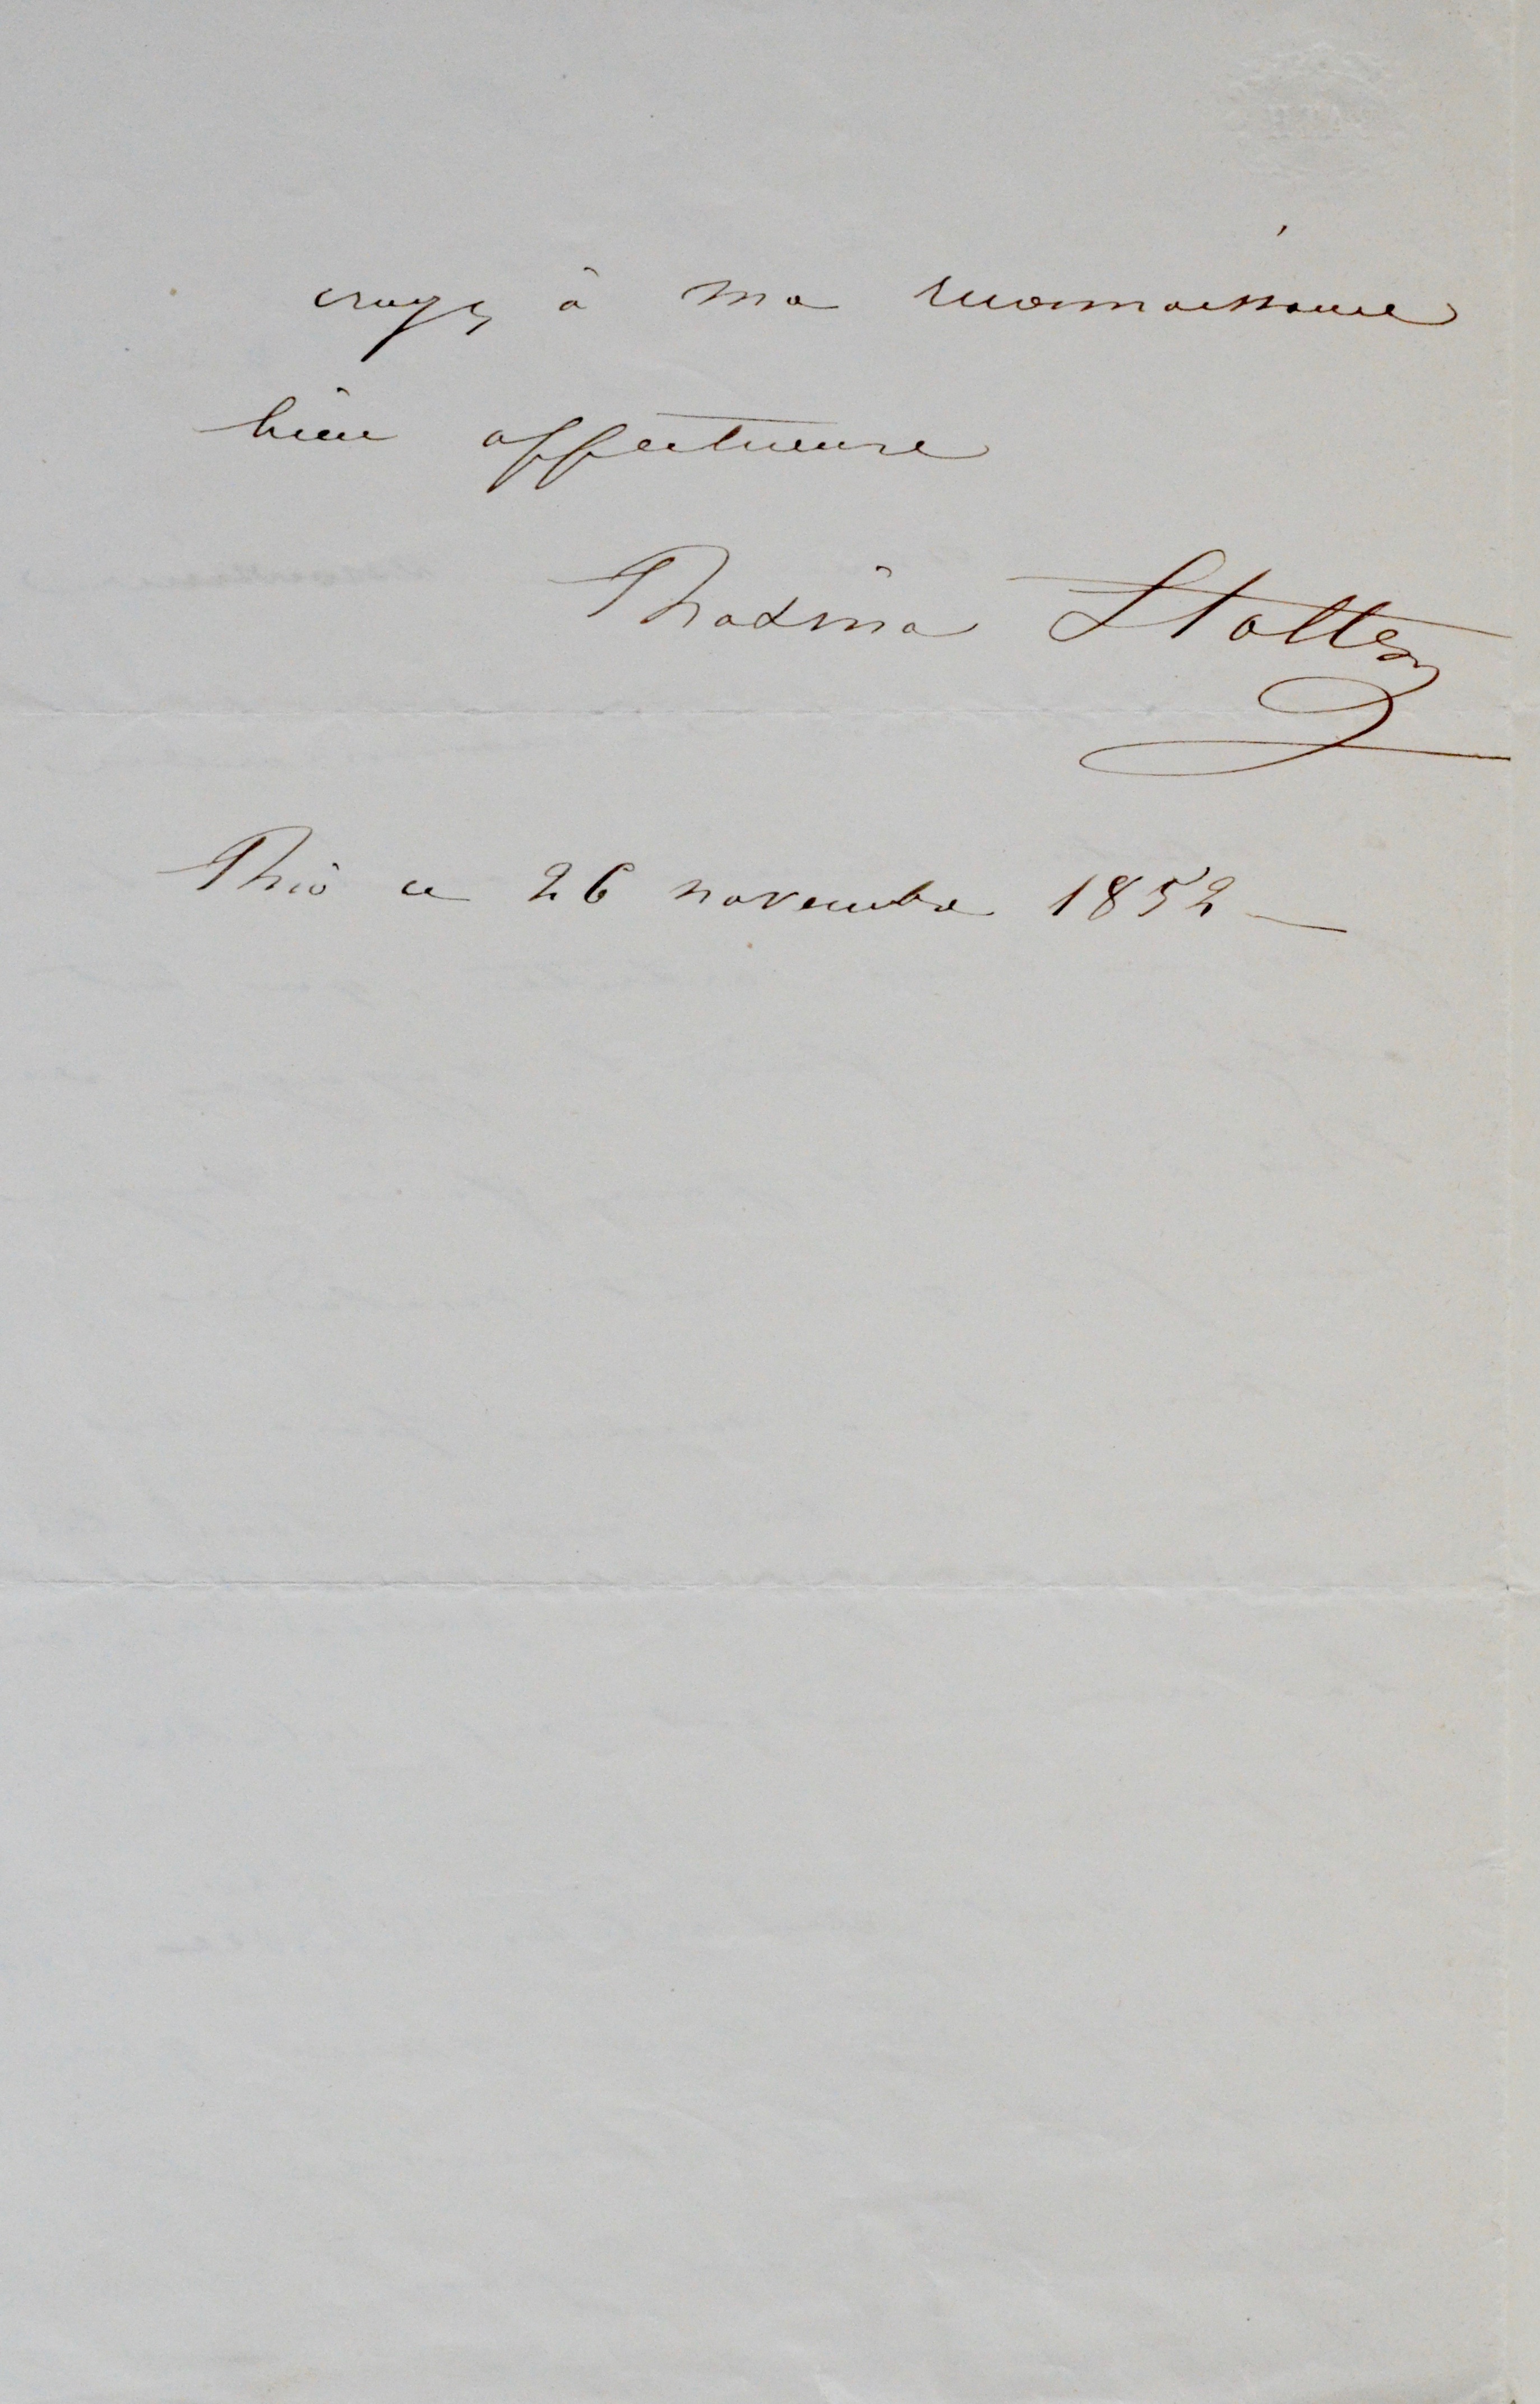 croyez à ma reconnaissance
bien affectueuse
Rosina Stoltz
Rio ce 26 novembre 1852